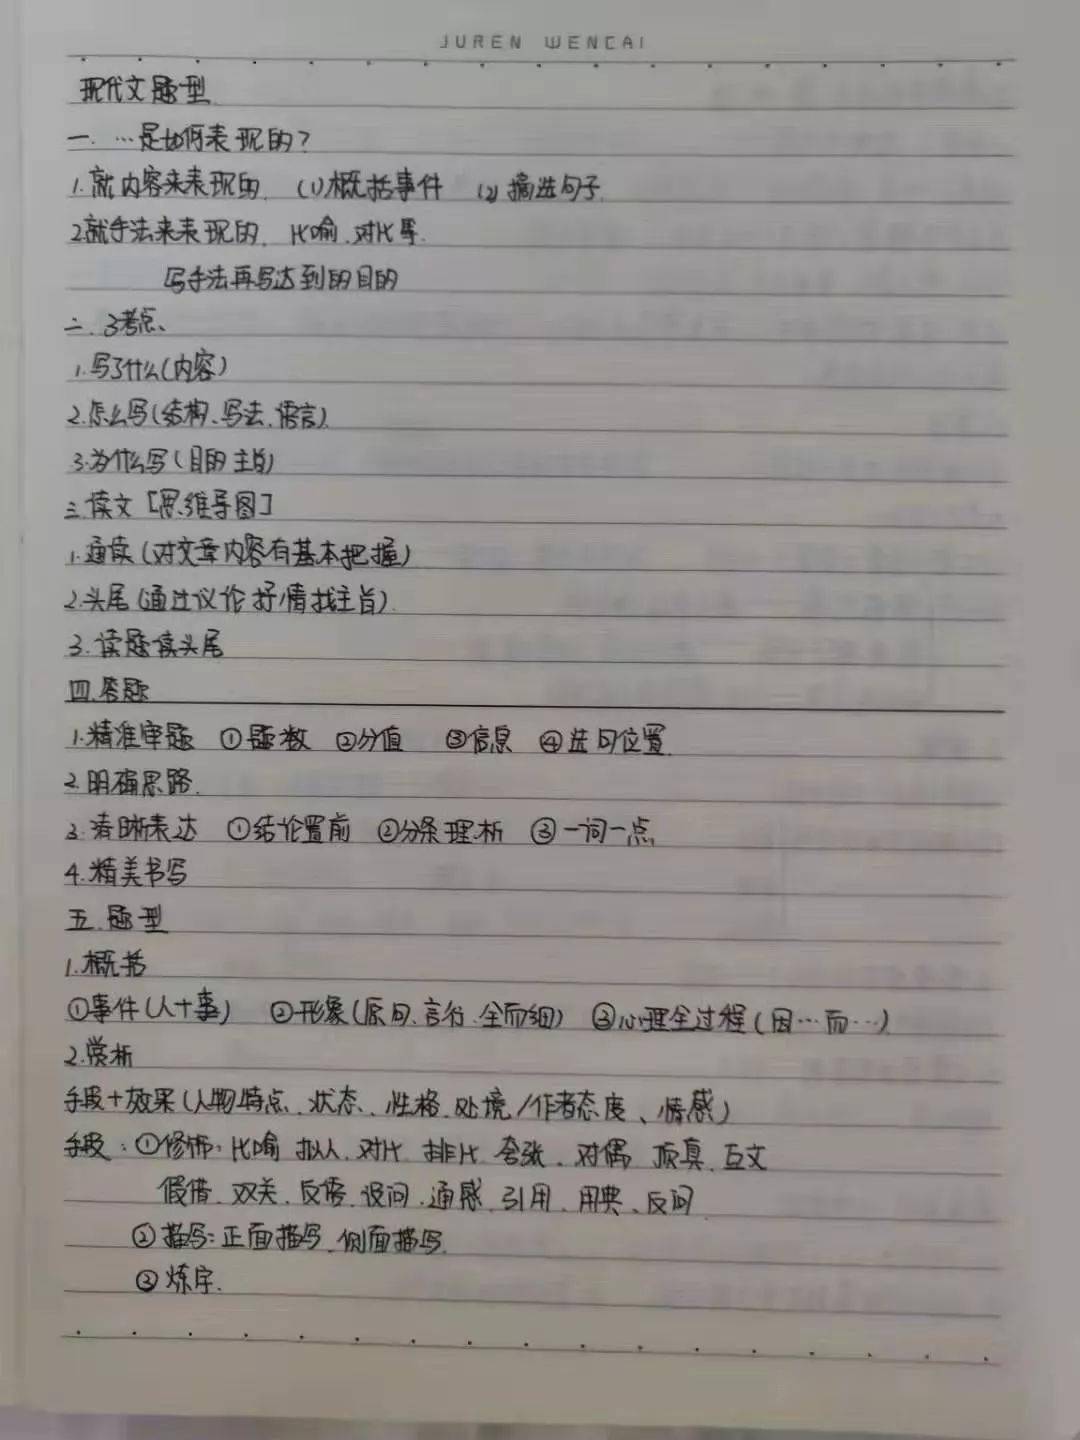 JUREN WENCAI
现代文题型
一. …是如何表现的?
1.就内容来表现的. (1)概括事件 (2)摘选句子.
2.就手法来表现的. 比喻.对比等.
写手法再写达到的目的
二. 3考点、
1.写了什么(内容)
2.怎么写(结构、写法.语言)
3.为什么写(目的 主旨)
三.读文[思维导图]
1.通读(对文章内容有基本把握)
2.头尾(通过议论抒情找主旨).
3.读题读头尾
四.答题
1.精准审题 ①题数 ②分值 ③信息 ④选句位置.
2.明确思路.
3.清晰表达 ①结论置前 ②分条理析 ③一词一点
4.精美书写
五.题型
1.概括
①事件(人+事) ②形象(原句.言行.全而细) ③心理全过程(因…而…)
2.赏析
手段+效果(人物特点.状态、性格.处境/作者态度、情感)
手段:①修饰:比喻 拟人.对比.排比.夸张.对偶 顶真.互文
假借.双关.反语.设问.通感.引用.用典、反问
②描写:正面描写.侧面描写.
③炼字.